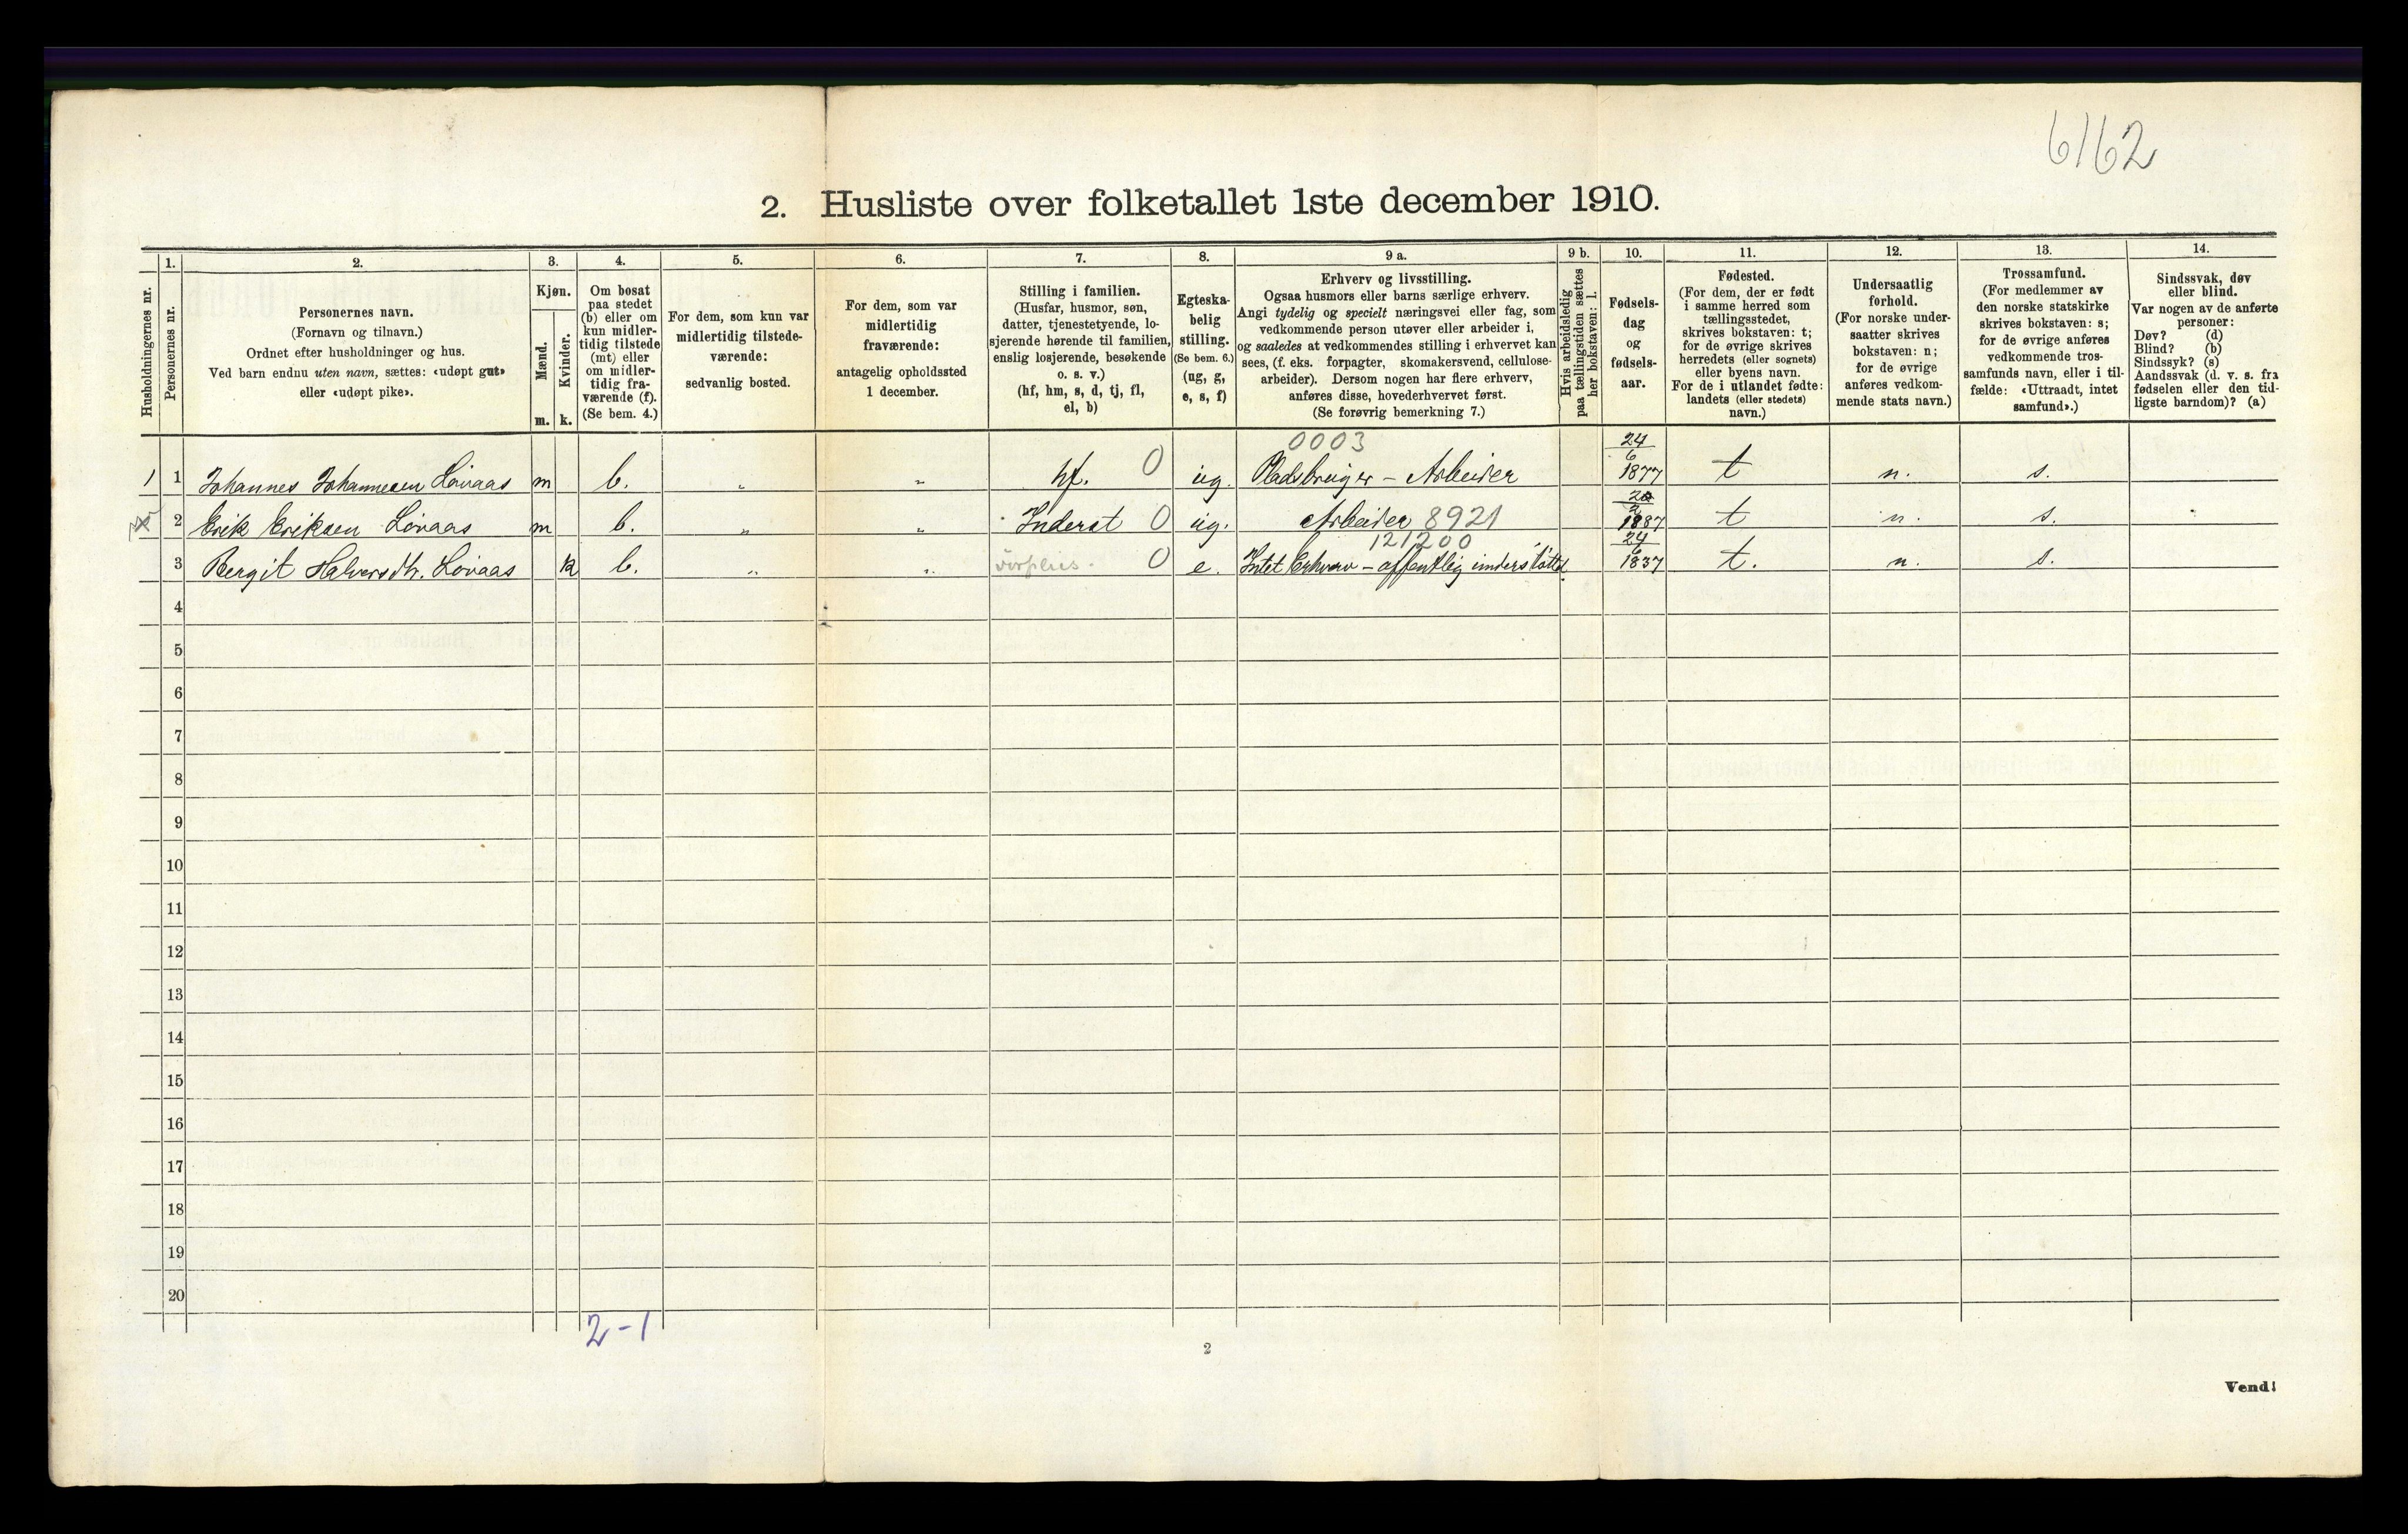 6162
2. Husliste over folketallet 1ste december 1910.
Husholdningernes nr.
1.
Personernes nr.
2.
Personernes navn.
(Fornavn og tilnavn.)
Ordnet efter husholdninger og hus.
Ved barn endnu uten navn, sættes: «udøpt gut»
eller «udøpt pike».
3.
Kjøn.
Mænd.
Kvinder.
m. k.
4.
Om bosat
paa stedet
(b) eller om
kun midler-
tidig tilstede
(mt) eller
om midler-
tidig fra-
værende (f).
(Se bem. 4.)
5.
For dem, som kun var
midlertidig tilstede-
værende:
sedvanlig bosted.
6.
For dem, som var
midlertidig
fraværende:
antagelig opholdssted
1 december.
7.
Stilling i familien.
(Husfar, husmor, søn,
datter, tjenestetyende, lo-
sjerende hørende til familien,
enslig losjerende, besøkende
o. s. v.)
(hf, hm, s, d, tj, fl,
el, b)
8.
Egteska-
belig
stilling.
(Se bem. 6.)
(ug, g,
e, s, f)
9 a.
Erhverv og livsstilling.
Ogsaa husmors eller barns særlige erhverv.
Angi tydelig og specielt næringsvei eller fag, som
vedkommende person utøver eller arbeider i,
og saaledes at vedkommendes stilling i erhvervet kan
sees, (f. eks. forpagter, skomakersvend, cellulose-
arbeider). Dersom nogen har flere erhverv,
anføres disse, hovederhvervet først.
(Se forøvrig bemerkning 7.)
9 b.
Hvis arbeidsledig
paa tællingstiden sættes
her bokstaven: l.
10.
Fødsels-
dag
og
fødsels-
aar.
11.
Fødested.
(For dem, der er født
i samme herred som
tællingsstedet,
skrives bokstaven: t;
for de øvrige skrives
herredets (eller sognets)
eller byens navn.
For de i utlandet fødte:
landets (eller stedets)
navn.)
12.
Undersaatlig
forhold.
(For norske under-
saatter skrives
bokstaven: n;
for de øvrige
anføres vedkom-
mende stats navn.)
13.
Trossamfund.
(For medlemmer av
den norske statskirke
skrives bokstaven: s;
for de øvrige anføres
vedkommende tros-
samfunds navn, eller i til-
fælde: «Uttraadt, intet
samfund».)
14.
Sindssvak, døv
eller blind.
Var nogen av de anførte
personer:
Døv? (d)
Blind? (b)
Sindssyk? (s)
Aandssvak (d. v. s. fra
fødselen eller den tid-
ligste barndom)? (a)
0003 24/6
1 1 Johannes Johannesen Lövaas m b. „ „ hf. 0 ug. Pladsbruger – Arbeider 1877 t n. s.
2 Erik Eriksen Lövaas m b. „ „ Inderst 0 ug. Arbeider 8921 1887 t n. s.
121200 24/6
3 Bergit Halversdtr. Lövaas k b. „ „ 0 e. Intet Erhverv – offentlig understöttet 1837 t. n. s.
4
5
6
7
8
9
10
11
12
13
14
15
16
17
18
19
20
2 – 1
2
Vend!